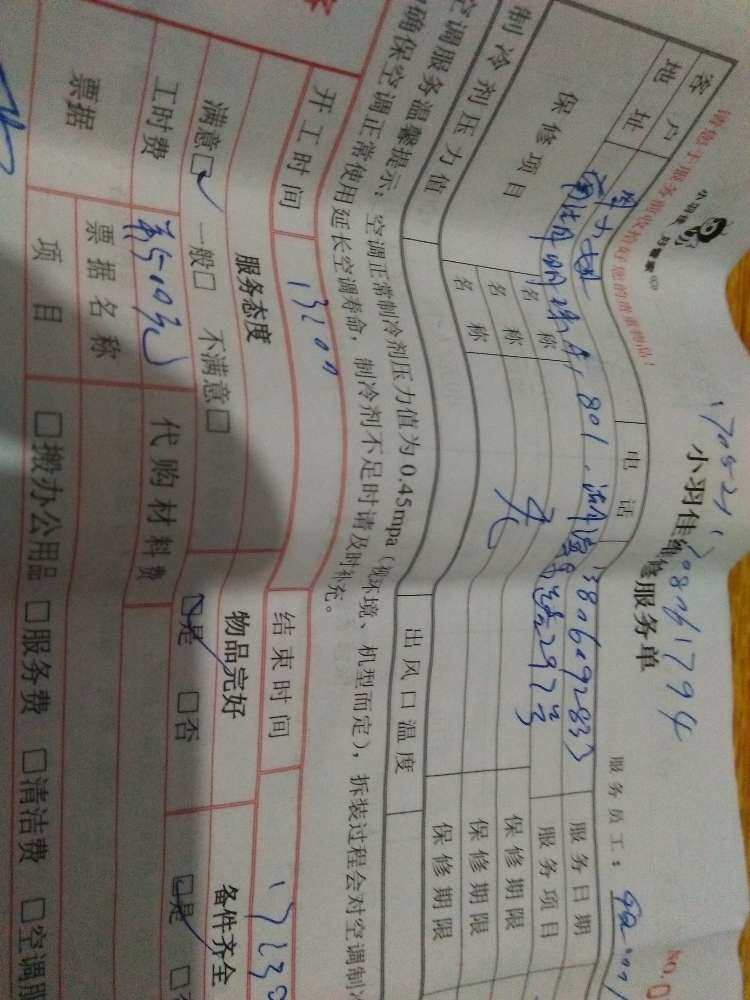 请您于服务前收拾好您的贵重物品！
小羽佳 好管家
小羽佳 维修服务单
服务员工：
NO.0
客户
电话
服务日期
地址
801
297号
服务项目
保修项目
名称
保修期限
名称
保修期限
名称
保修期限
无
制冷剂压力值
出风口温度
空调服务温馨提示：空调正常制冷剂压力值为0.45mpa（视环境、机型而定），拆装过程会对空调制冷
确保空调正常使用延长空调寿命，制冷剂不足时请及时补充。
开工时间
13:00
结束时间
服务态度
物品完好
备件齐全
满意□ 一般□ 不满意□
□是 □否
□是
工时费
代购材料费
票据
票据名称
项目
□搬办公用品 □服务费 □清洁费 □空调服